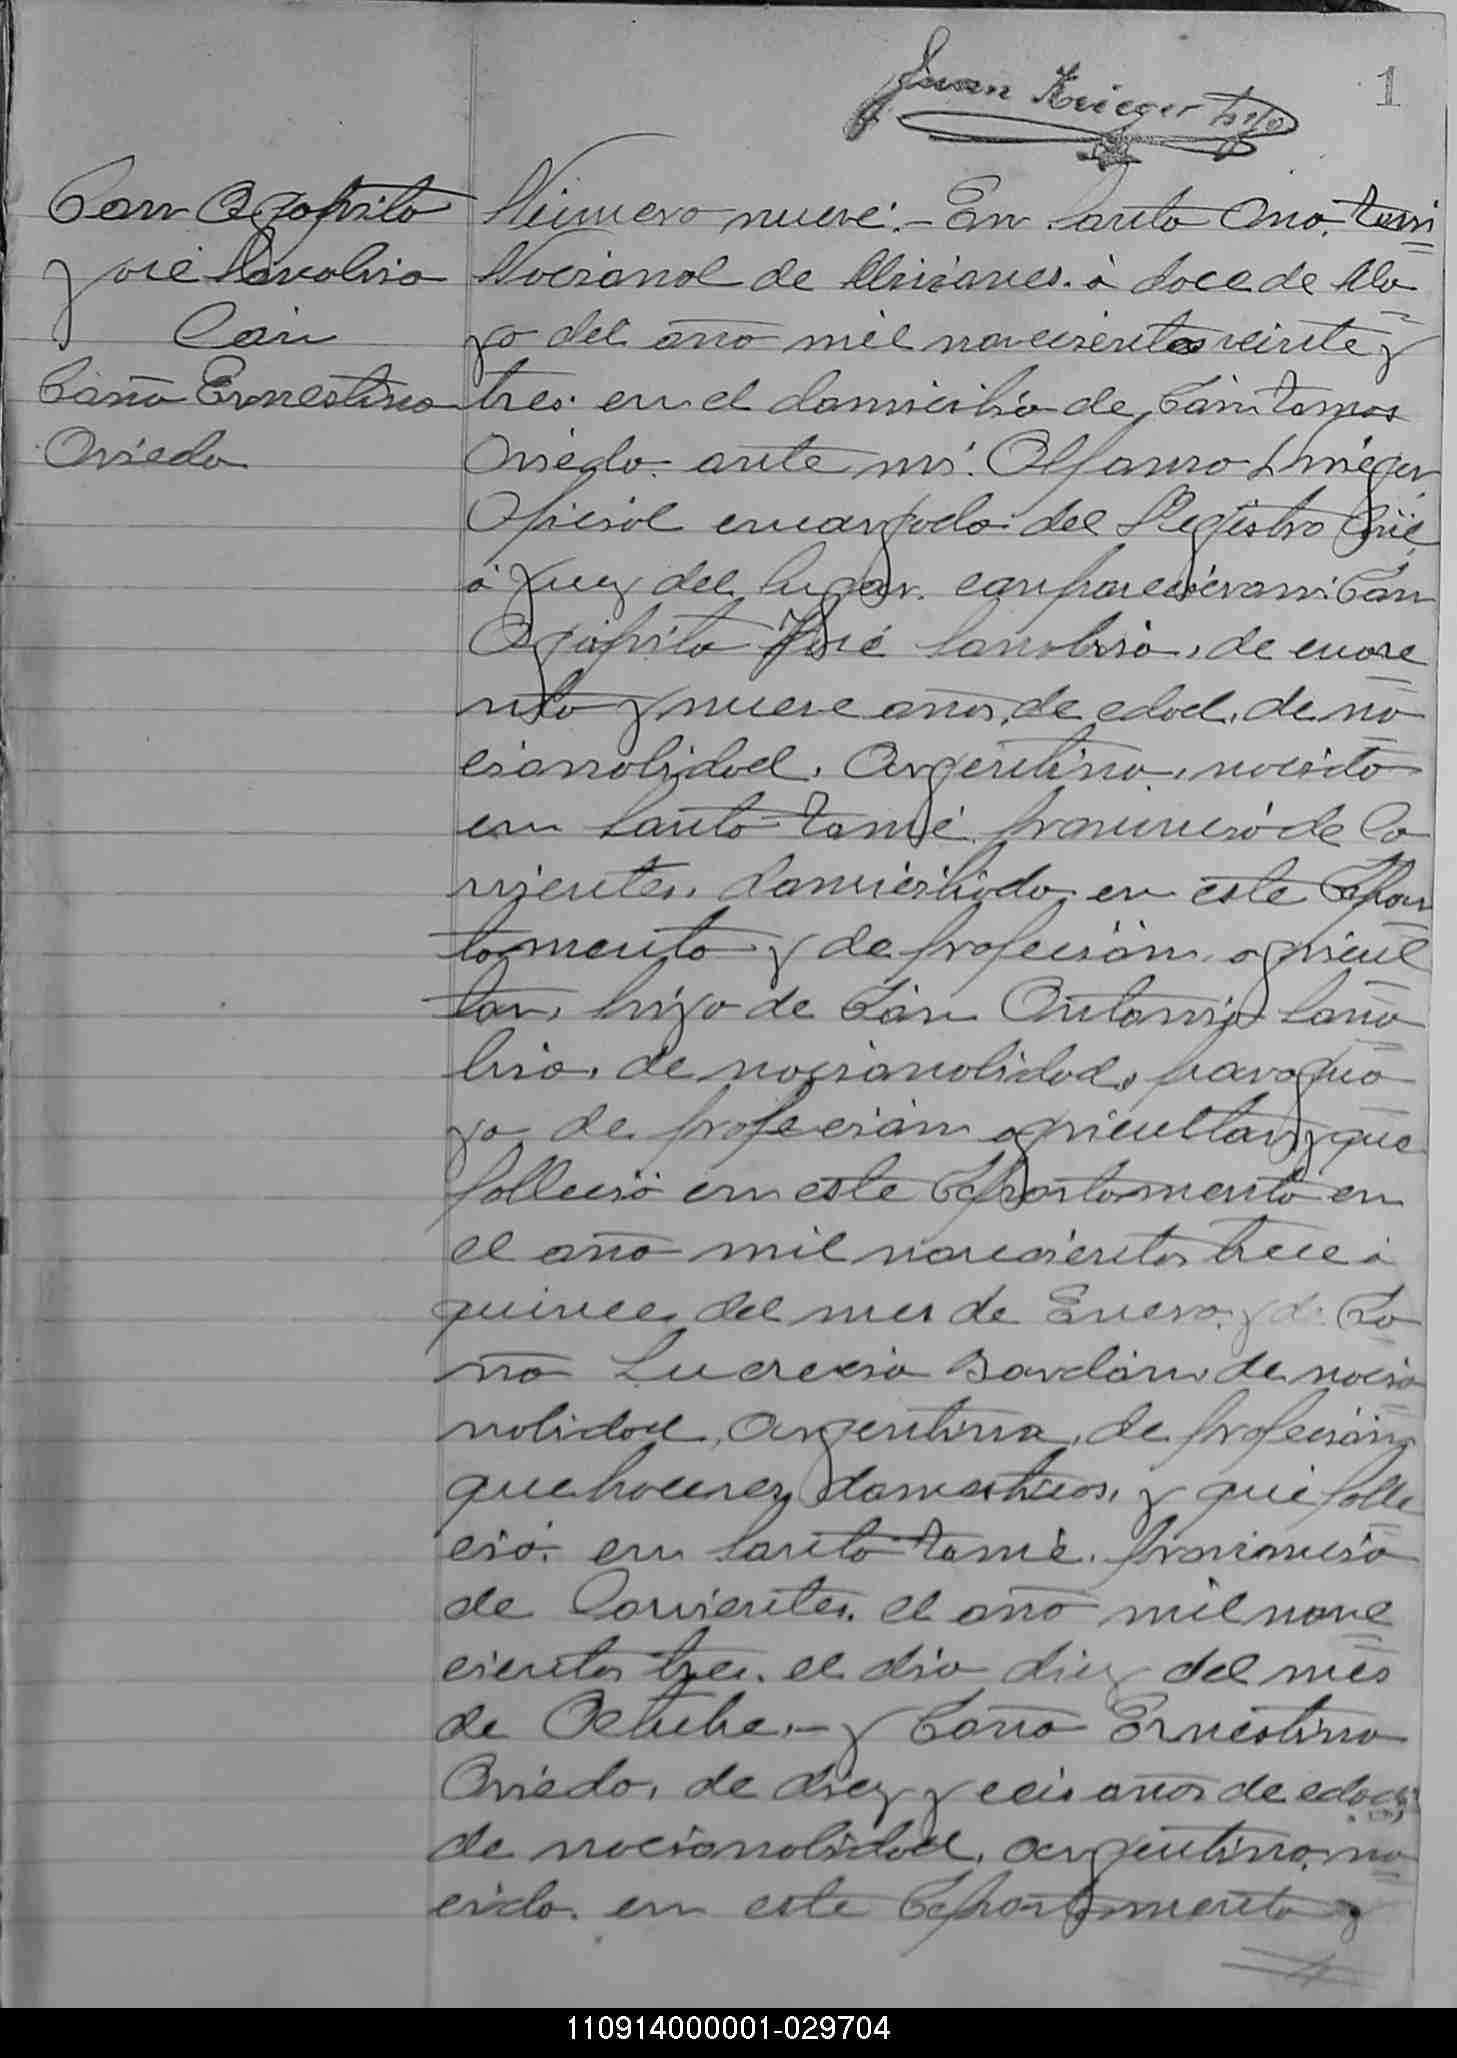 Juan Krieger hijo
1
Don Agapito
José Sanabria
Con
Doña Ernestina
Oviedo
Número nueve.- En Santa Ana, terri
Nacional de Misiones. á doce de Ma
yo del año mil novecientos veinte y
tres en el domicilio de Don Tomas
Oviedo. ante mi. Alfonso Krieger
Oficial encargado del Registro Civil
á Juez del lugar. comparecieron: Don
Agapito José Sanabria, de cuare
nta y nueve años, de edad, de na
cionalidad, Argentino, nacido
en Santo Tomé, provincia de Co
rrientes, domiciliado en este Depar
tamento y de profesión agricul
tor, hijo de Don Antonio Sana
bria, de nacionalidad, paragua
yo de profesión agricultor, y que
falleció en este Departamento en
el año mil novecientos trece á
quince del mes de Enero. y de Do
ña Lucrecia de nacio
nalidad, Argentina, de profesión,
quehaceres domesticos, y que falle
ció. en Santo Tomé. provincia
de Corrientes. el año mil nove
cientos tres. el dia diez del mes
de Octubre.- y Doña Ernestina
Oviedo, de diez y seis años de edad,
de nacionalidad, argentina, na
cida. en este Departamento y
110914000001-029704